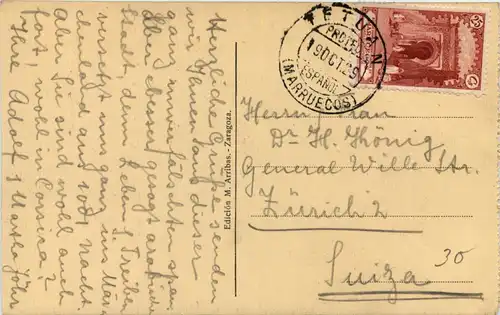 Herzliche Grüsse senden
wir Ihnen aus dieser
ganz unverfälschten span.
Aber besser gesagt arabische
Stadt, deren Leben & Treiben
versetzt uns ganz ins Mär-
chenland aus 1001 Nacht.
Aber Sie sind wohl auch
fort, wohl in Corsica?
Ihre Adolf & Martha Jöhr
Edición M. Arribas.- Zaragoza.
TETUAN
PROTEC
19 OCT. 29
ESPAÑOL
(MARRUECOS)
Herrn & Frau
Dr. H. König
General Wille Str.
Zürich 2
30
Suiza